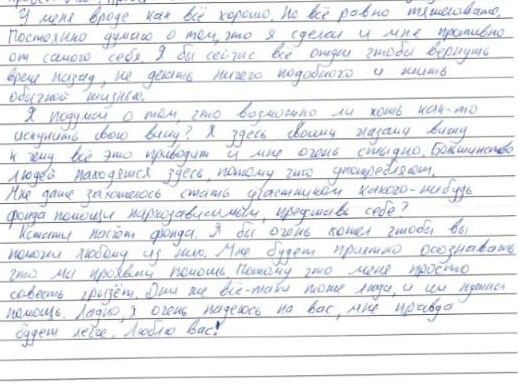 У меня вроде как всё хорошо. Но всё равно тяжеловато.
Постоянно думаю о том, что я сделал и мне противно
от самого себя. Я бы сейчас всё отдал чтобы вернуть
время назад, не делать ничего подобного и жить
обычной жизнью.
Я подумал о том, что возможно ли хоть как-то
искупить свою вину? Я здесь своими глазами вижу
к чему всё это приводит и мне очень стыдно. Большинство
людей находятся здесь, потому что употребляют.
Мне даже захотелось стать участником какого-нибудь
фонда помощи наркозависимым, представь себе?
Кстати насчёт фонда. Я бы очень хотел чтобы вы
помогли любому из них. Мне будет приятно осознавать
что мы проявили помощь. Потому что меня просто
совесть грызёт. Они же всё-таки тоже люди, и им нужна
помощь. Ладно, я очень надеюсь на вас, мне правда
будет легче. Люблю вас!